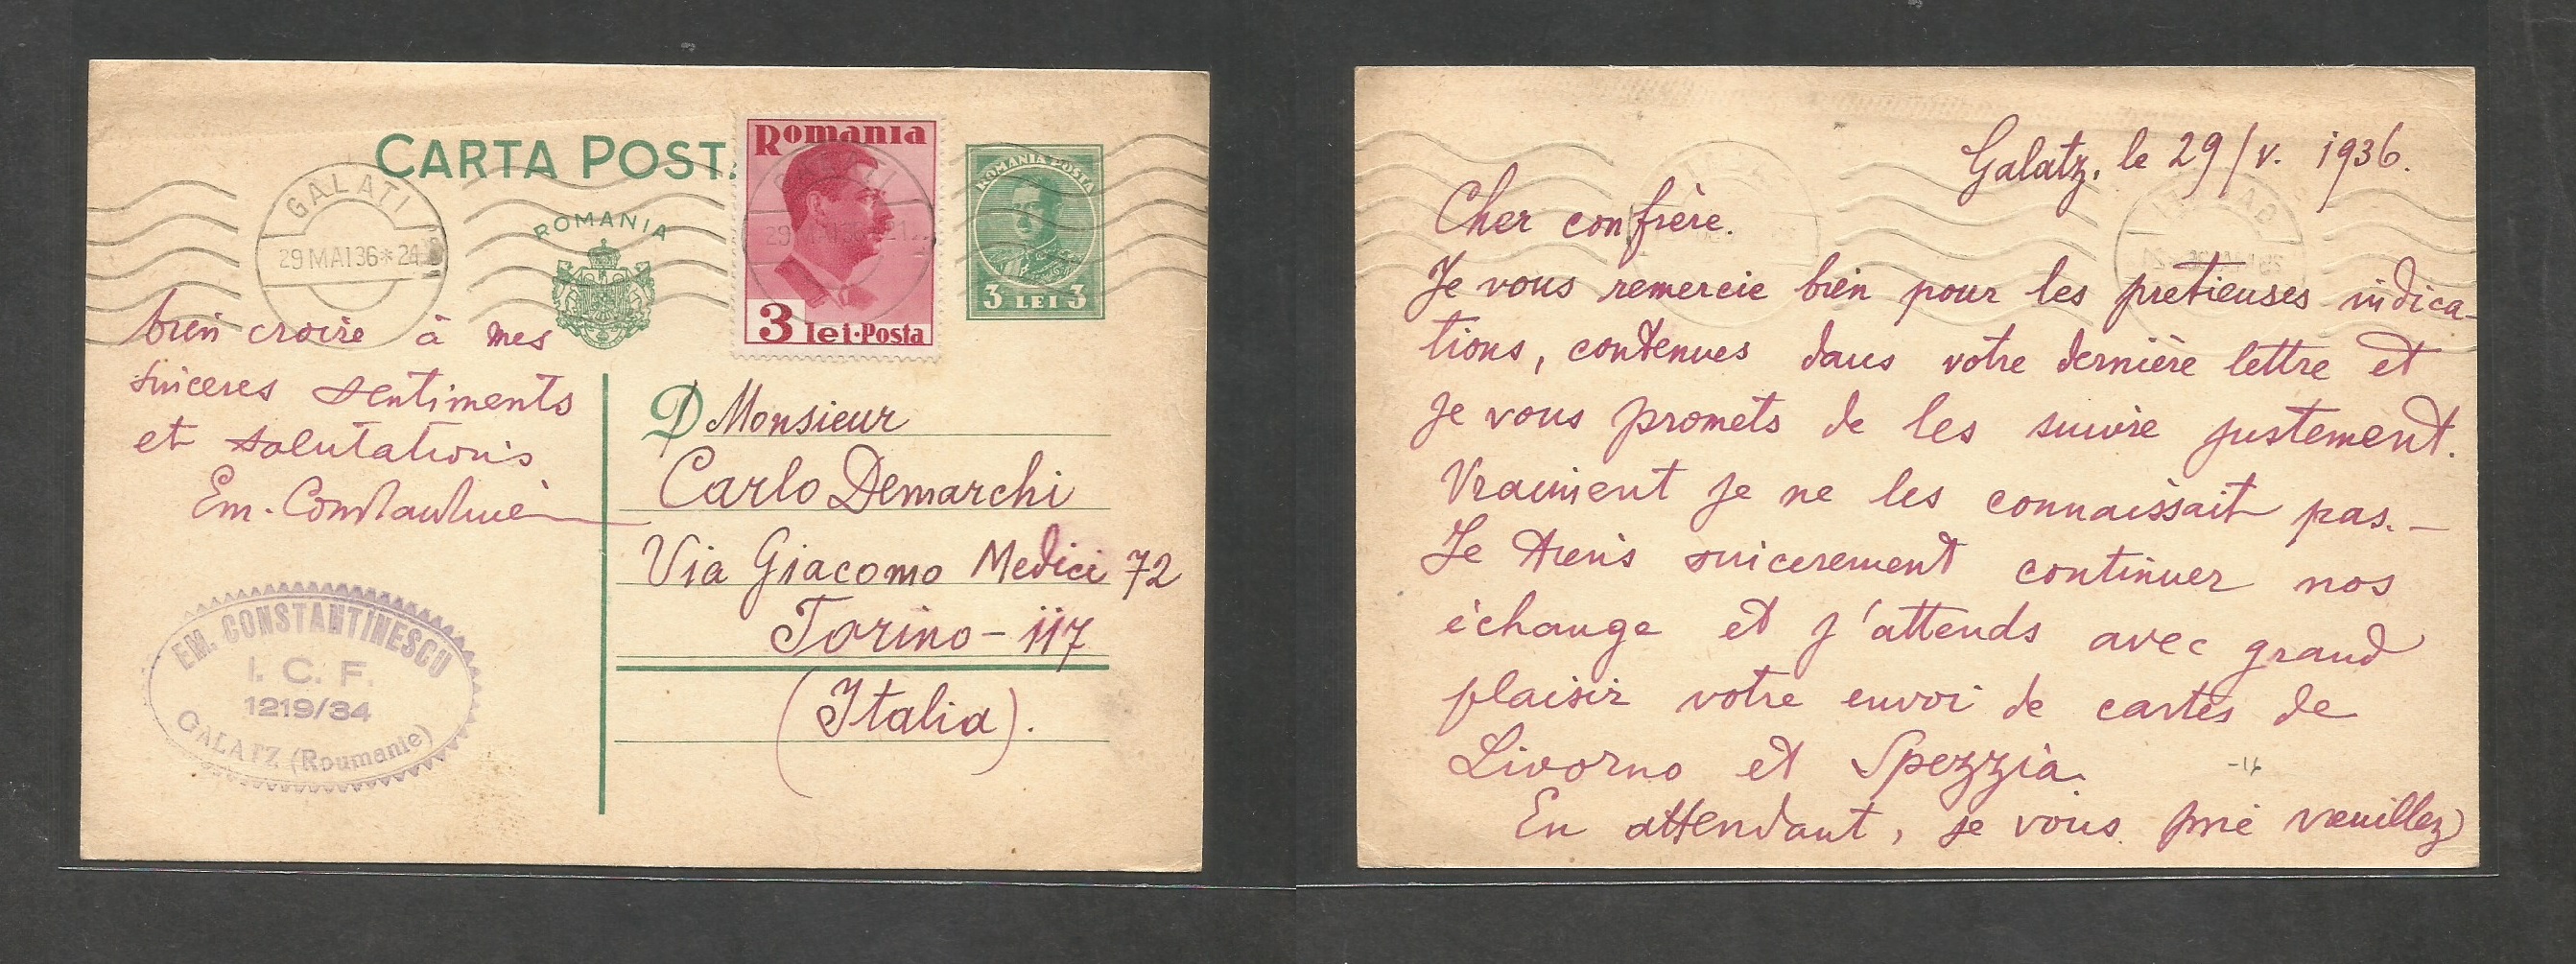 CARTA POST.
ROMANIA
GALATI
29 MAI 36 * 24
Romania
3 lei·Posta
ROMANIA POSTA
3 LEI 3
bien croire à mes
sinceres sentiments
et salutations
Em.
D Monsieur
Carlo Demarchi
Via Giacomo Medici 72
Torino - 117
(Italia).
EM. CONSTANTINESCU
I. C. F.
1219/34
GALATZ (Roumanie)
Galatz, le 29/V. 1936.
Cher confrère.
Je vous remercie bien pour les pretieuses indica-
tions, contenues dans votre dernière lettre et
je vous promets de les suivre justement.
Vraiment je ne les connaissait pas.-
Je tiens sincerement continuer nos
échange et j'attends avec grand
plaisir votre envoi de cartes de
Livorno et Spezzia.
En attendant, je vous prie veuillez